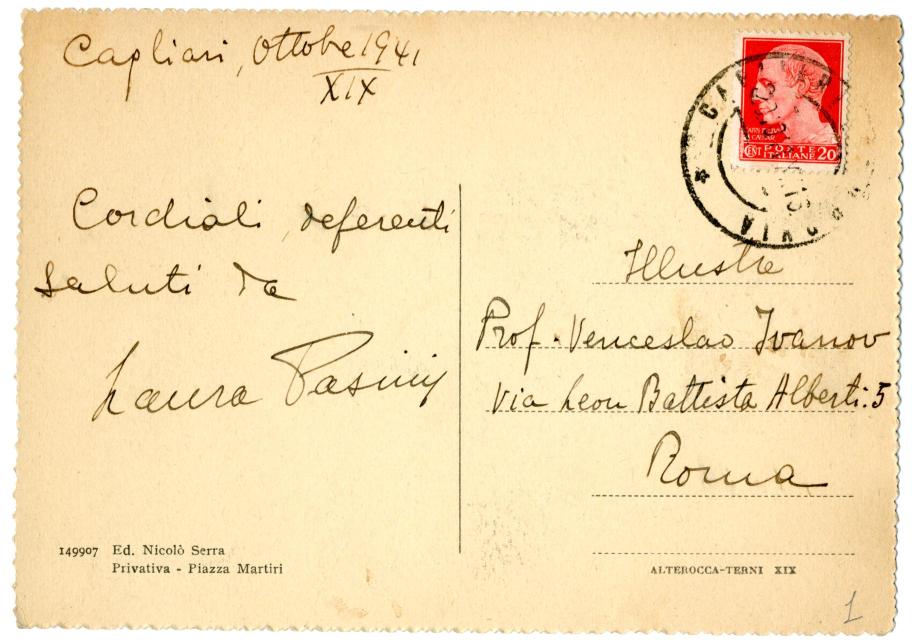 Cagliari, Ottobe 1941
XIX
Cordiali, deferenti
saluti da
Laura Pasini
149907 Ed. Nicolò Serra
Privativa - Piazza Martiri
POSTE
CENT ITALIANE 20
Illustre
Prof. Venceslao Ivanov
Via Leon Battista Alberti. 5
Roma
ALTEROCCA-TERNI XIX
1